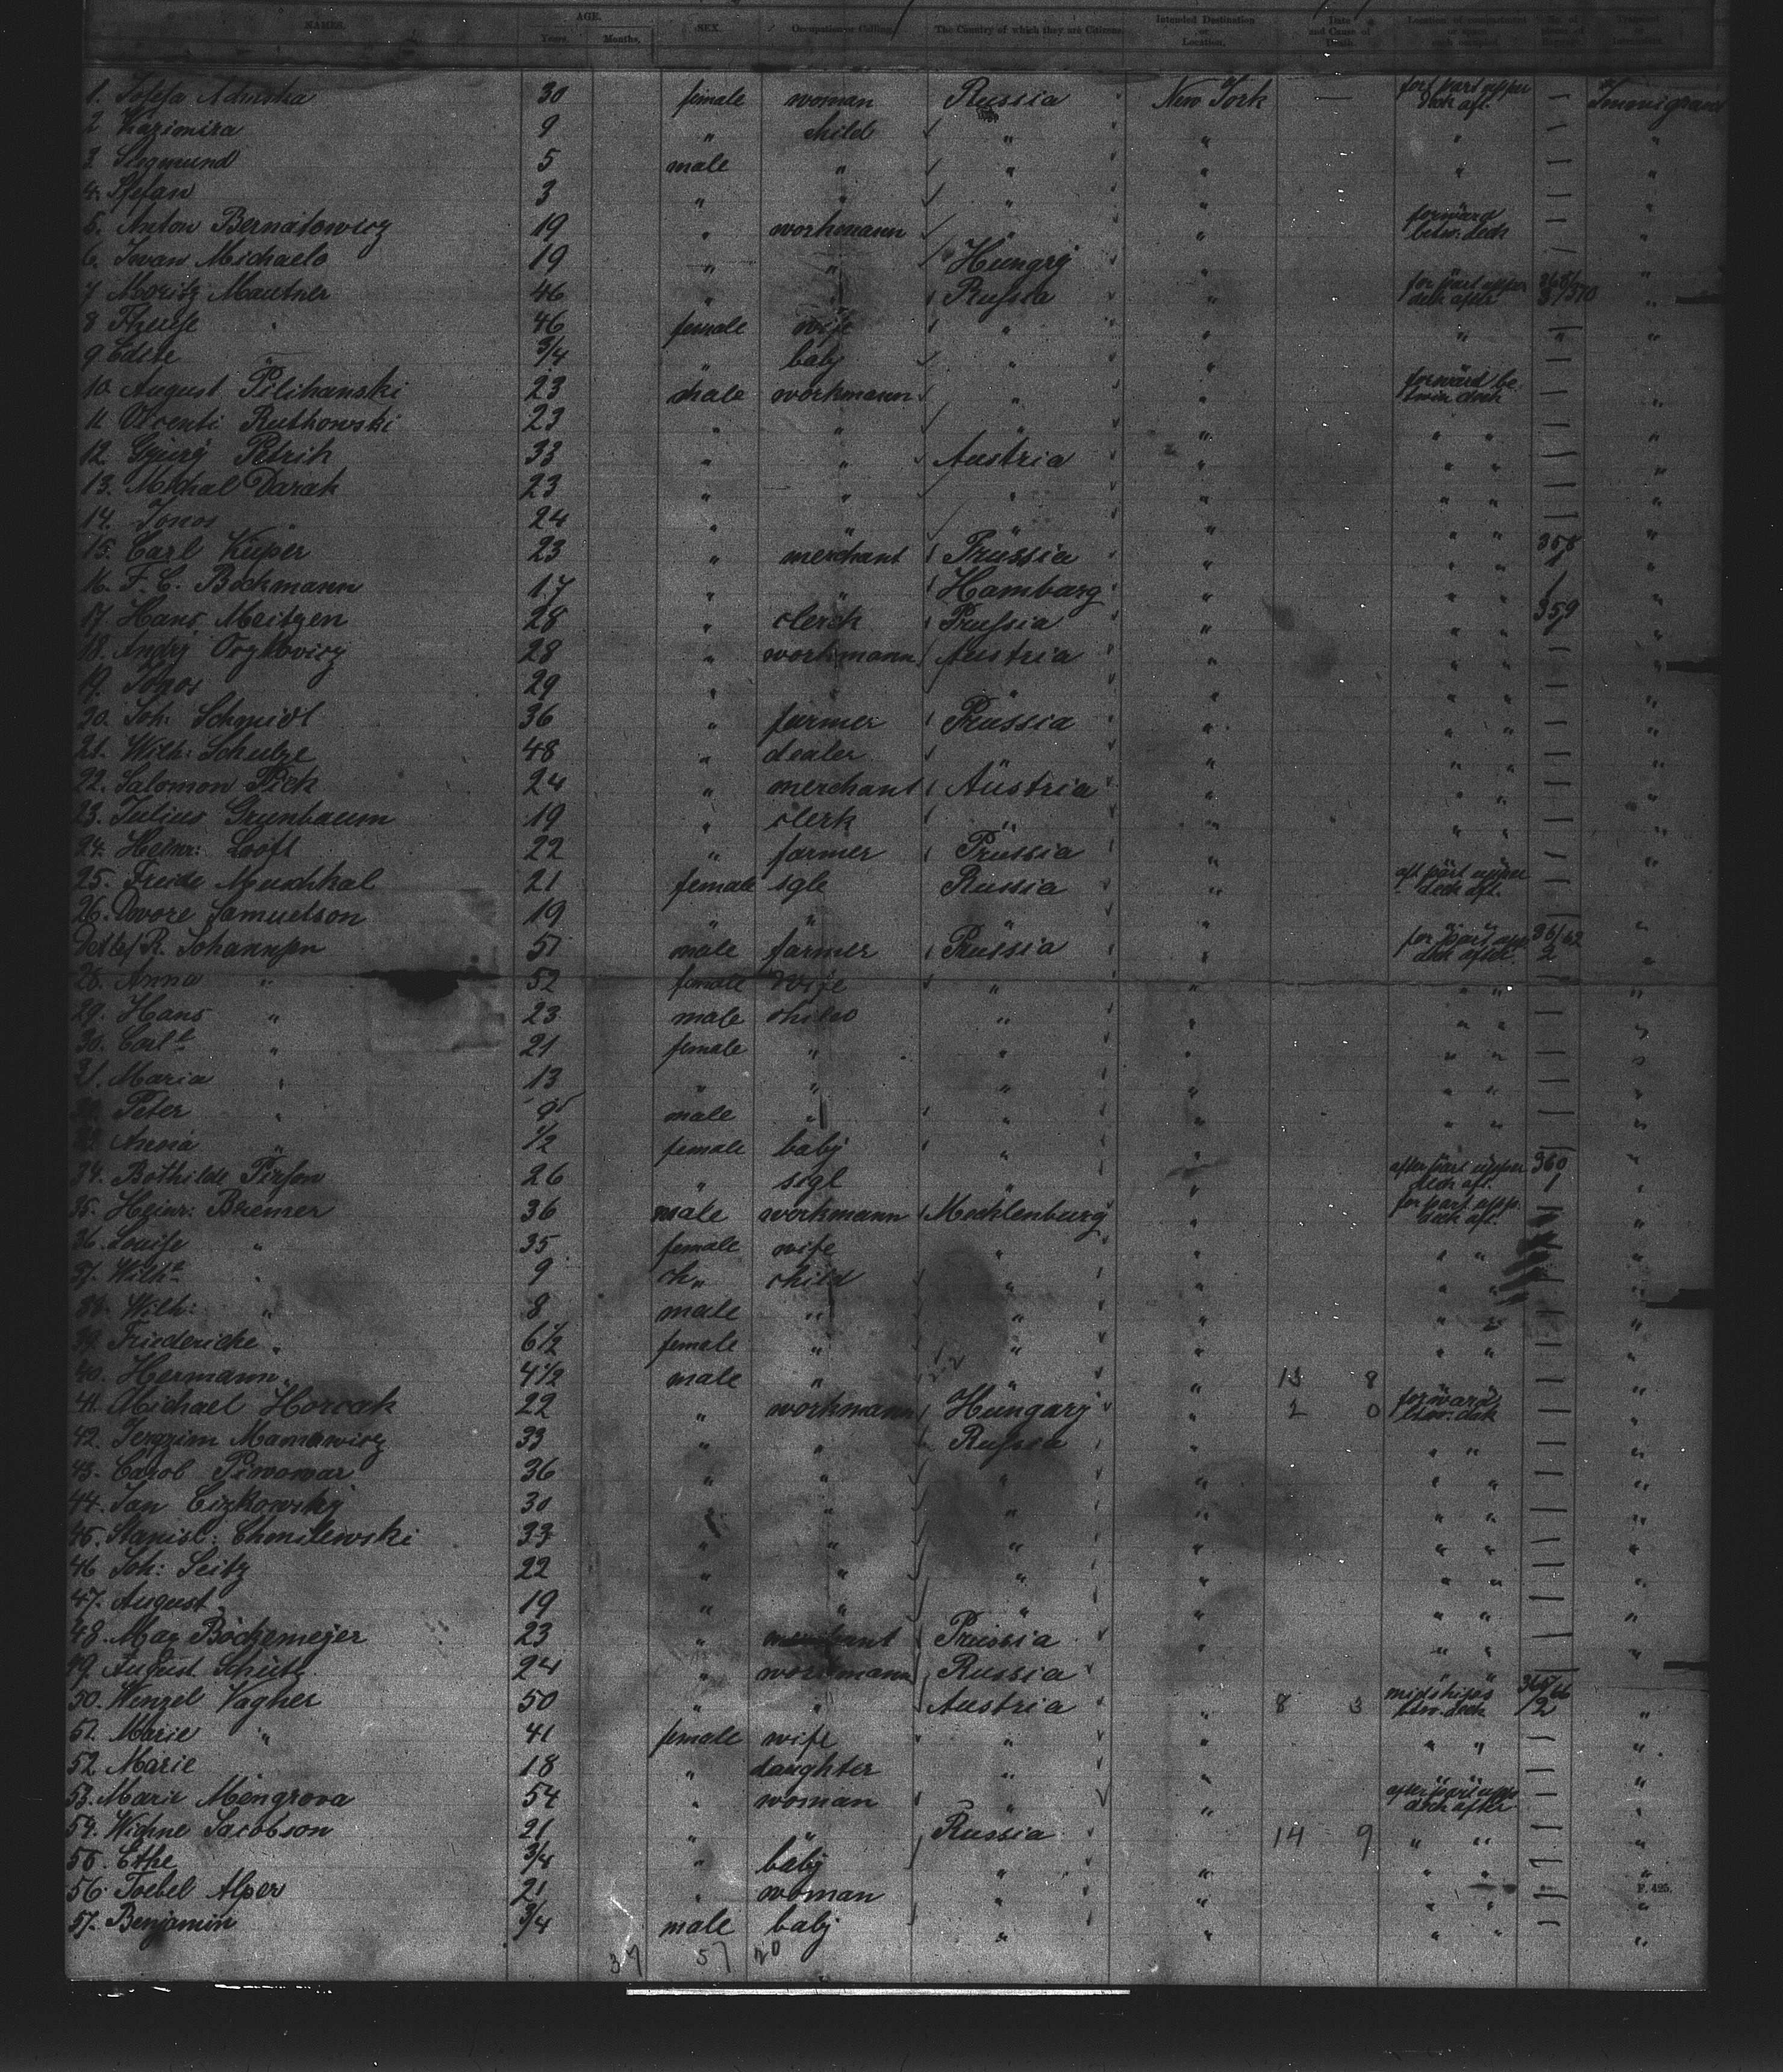 NAMES. AGE. Years. Months. SEX. Occupation or Calling. The Country of which they are Citizens. Intended Destination or Location. Date and Cause of Death. Location of compartment or space each occupied. No. of pieces of Baggage. Transient
1. Josefa 30 female woman Russia New York — for part upper deck aft. —
2 Kazimira 9 " child " " " — "
3. Siegmund 5 male " " " " — "
4. Stefan 3 " " " " —
5. Anton Bernatowicz 19 " workmann " " forward betw. deck — "
6. Iwan Michaelo 19 " " Hungry " — "
7 Moritz Mautner 46 " " Russia " for part upper deck aft "
8 46 female wife " " " " "
9 3/4 " baby " "
10. August Pilihanski 23 male workmann " " forward be tween deck — "
11 Ruthowski 23 " " " " " " — "
12. Petrik 33 " " Austria " " " — "
13. Michal Darak 23 " " " " " " — "
14. Janos 24 " " " " " " — "
15. Carl Küper 23 " merchant Prussia " " " 358 "
16. F. C. Bockmann 17 " " Hamburg " " " "
17. Hans Meitzen 28 " clerk Prussia " " " 359 "
18. Andrj 28 " workmann Austria " " " — "
19. Janos 29 " " " " " " — "
20. Joh: Schmidt 36 " farmer Prussia " " " — "
21. Wilh: Schulze 48 " dealer " " " " — "
22. Salomon Pick 24 " merchant Austria " " " — "
23. Julius Grunbaum 19 " clerk " " " " — "
24. Heinr: Looft 22 " farmer Prussia " " " — "
25. Freide Meuchkal 21 female sgle Russia " aft part upper deck aft. —
26. Dwore Samuelson 19 " " " " " " — "
Detlef R. Johannsen 51 male farmer Prussia " for part upp. deck after. 2 "
28. Anna " 52 female wife " " " " — "
29. Hans " 23 male child " " " " — "
30. Carl " 21 female " " " " " — "
31. Maria " 13 " " " " " " — "
Peter " 9 male " " " " " — "
Anna " 1/2 female baby " " " " — "
34. Bothilde Person 26 " sigl " " after part upper deck aft. 360 1 "
35. Heinr: Bremer 36 male workmann Mecklenburg " for part upp. deck aft. — "
36. Louise " 35 female wife " " " " "
37. Wilh. " 9 child " " " " "
38. Wilh: " 8 male " " " " " — "
39. Friedericke " 6 1/2 female " " " " " — "
40. Hermann " 4 1/2 male " " " 13 8 " " — "
41. Michael Horcak 22 " workmann Hungary " 2 0 forward betw. dek — "
42. Mamawicz 33 " " Russia " " " — "
43. Carol Piwowar 36 " " " " " " — "
44. Jan Cizkowsky 30 " " " " " " — "
45. Stanisl: Chmilewski 33 " " " " " " — "
46 Joh: Seitz 22 " " " " " " — "
47. August 19 " " " " " " — "
48. Max Böckemeyer 23 " merchant Prussia " " " — "
49. August Schutz 24 " workmann Russia " " —
50. Wenzel Vagner 50 " " Austria " 8 3 midships betw. deck "
51. Marie " 41 female wife " " " " — "
52. Marie 18 " daughter " " " " — "
53. Marie Mengrova 54 " woman " " after part upper deck after — "
54. Jacobson 21 " " Russia " 14 9 " " — "
55. Ethe 3/4 " baby " " " " — "
56. Toebel Alper 21 " woman " " " " — "
F. 425.
57. Benjamin 3/4 male baby " " " " — "
37 57 20